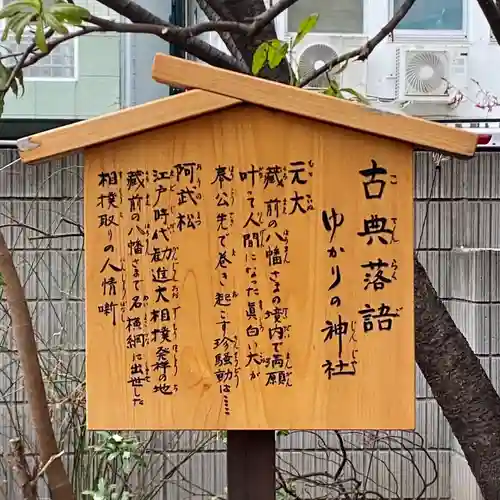 古典落語
ゆかりの神社
元犬
蔵前の八幡さまの境内で満願
叶って人間になった真白い犬が
奉公先で巻き起こす珍騒動は……
阿武松
江戸時代勧進大相撲発祥の地
蔵前の八幡さまで名横綱に出世した
相撲取りの人情噺